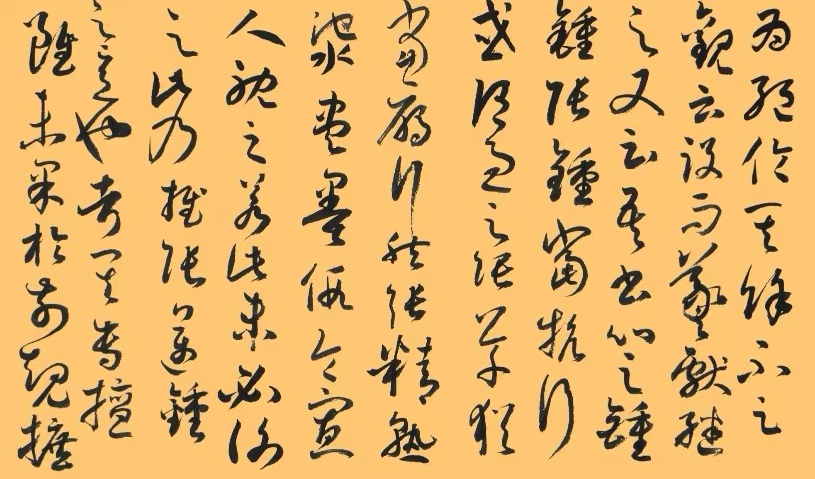 為絕倫其餘不足
觀云沒而羲獻繼
之又云吾書比之鍾
鍾張鍾當抗行
或謂過之張草猶
當雁行然張精熟
池水盡墨假令寡
人耽之若此未必謝
之此乃推張邁鍾
之意也考其專擅
雖未果於前規摭